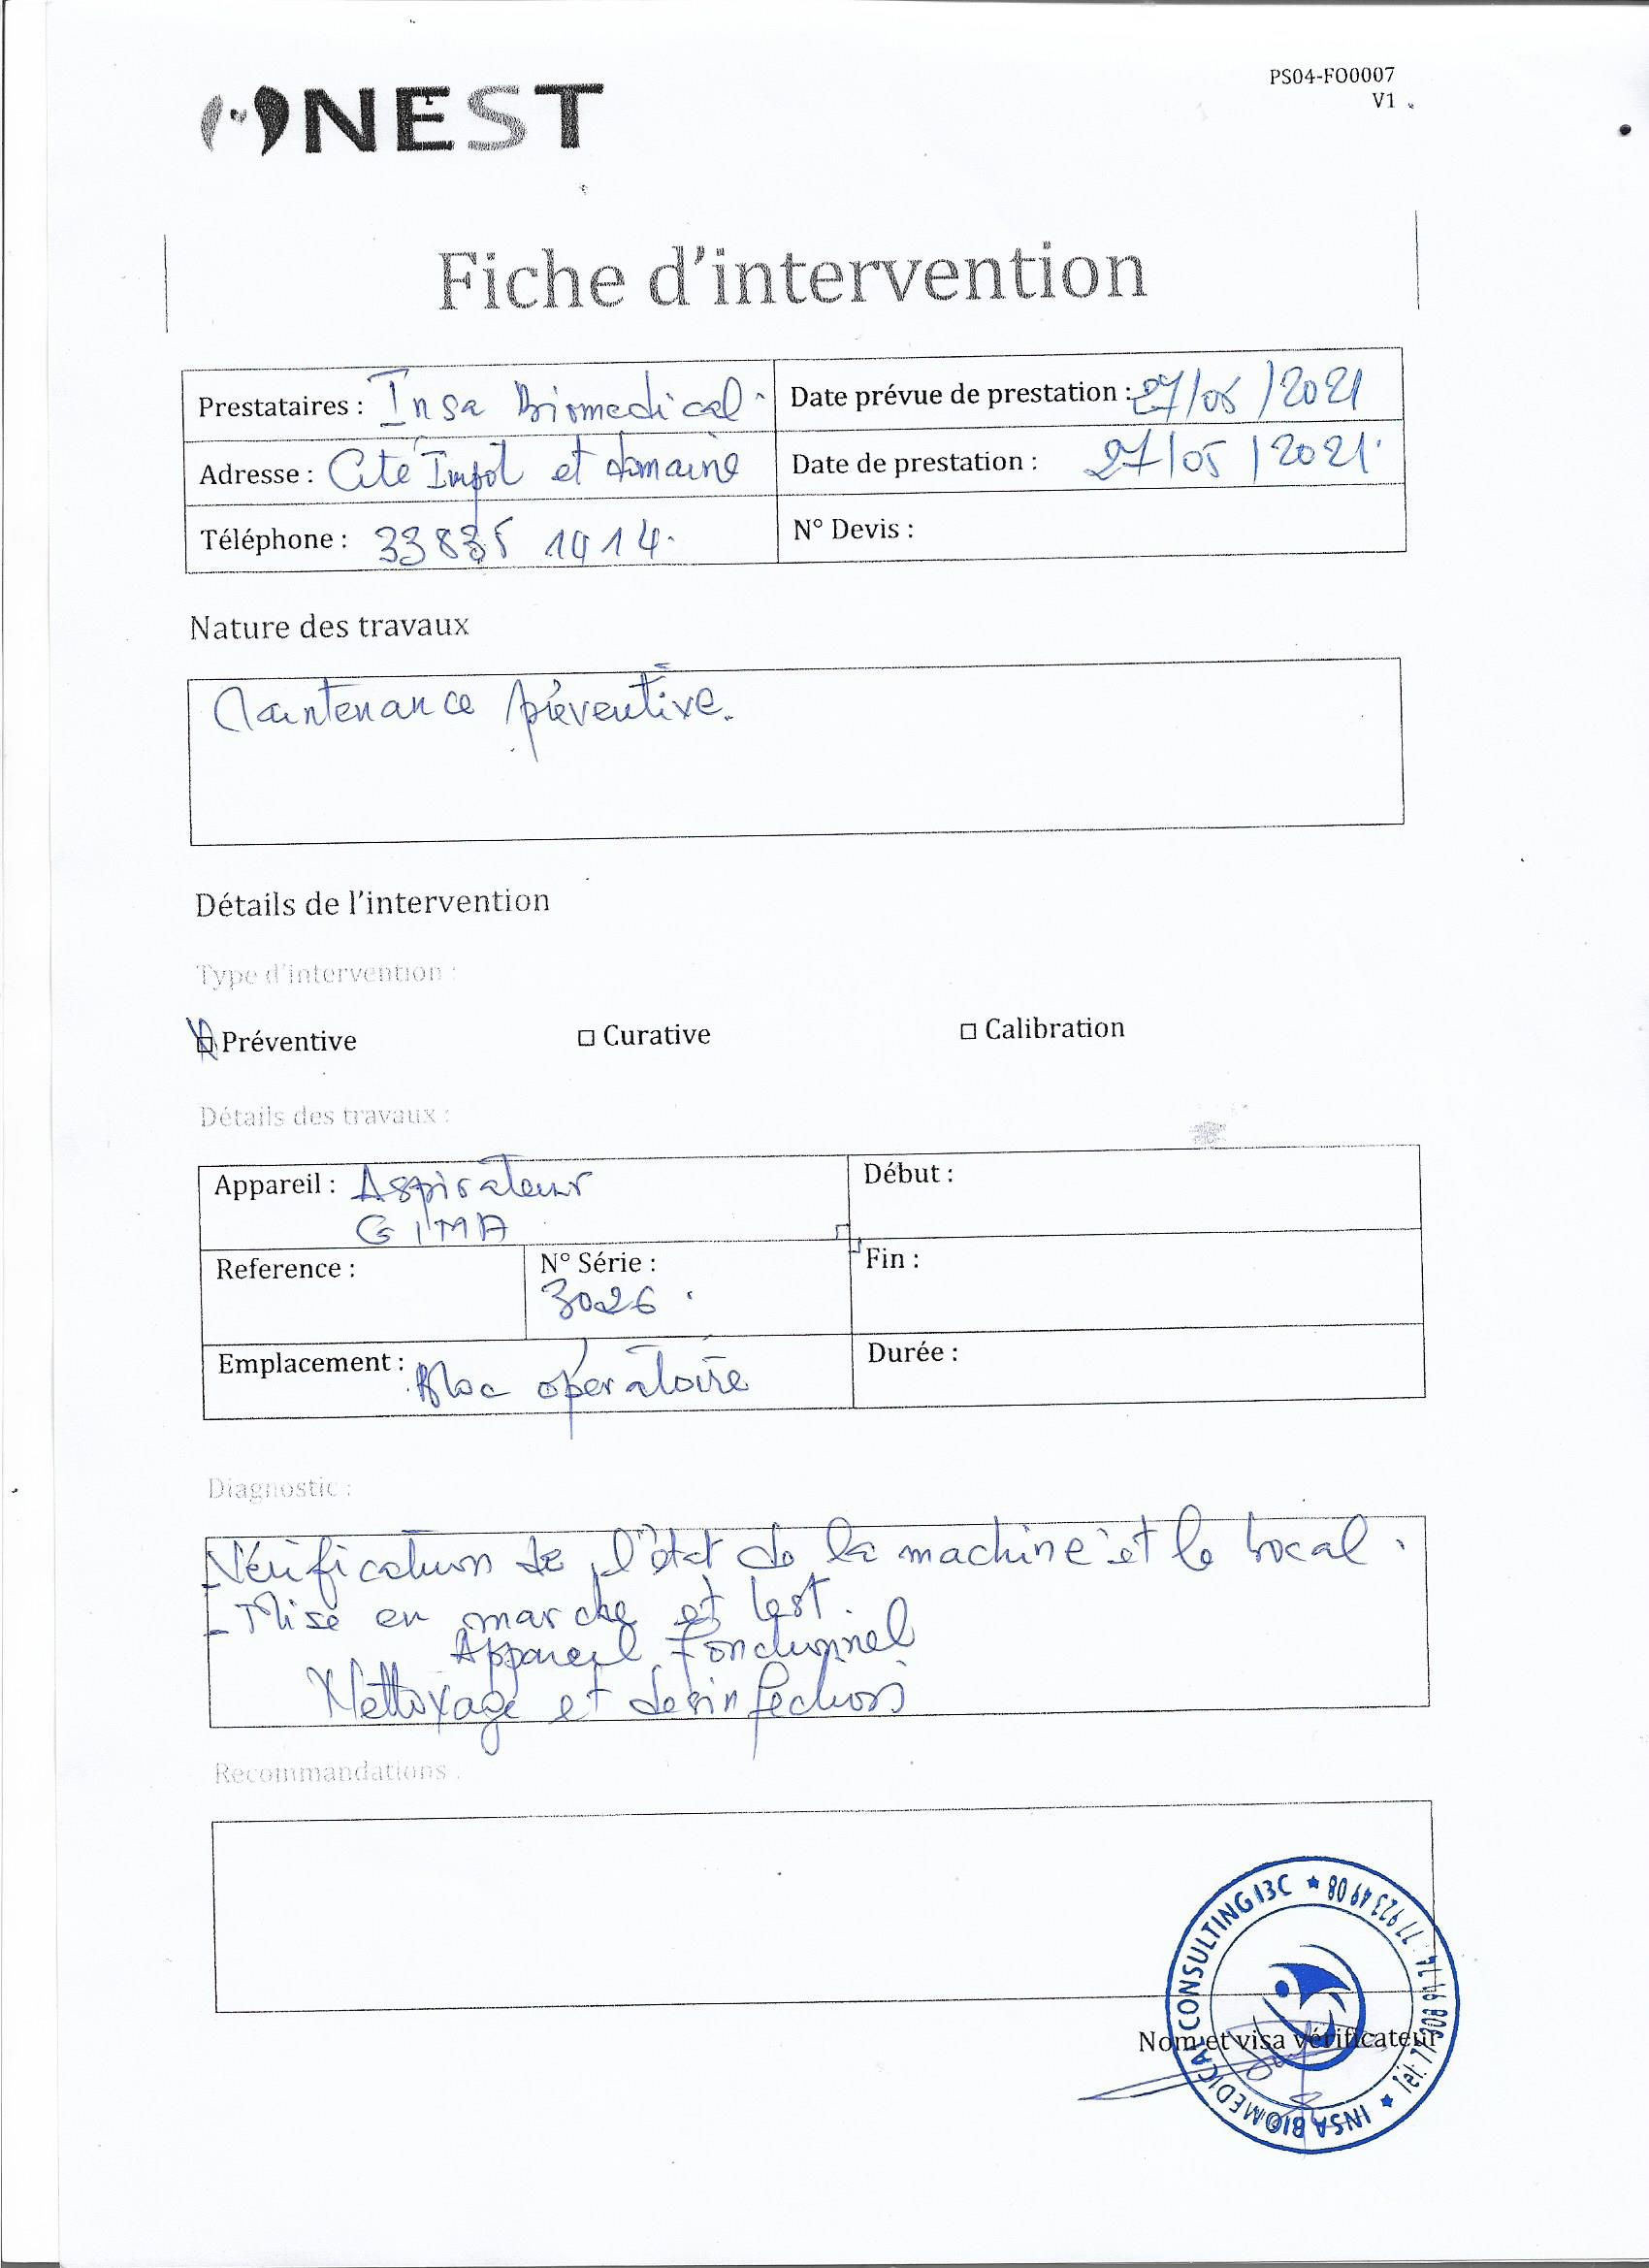 NEST
PS04-FO0007
V1
Fiche d'intervention
Prestataires : Insa Biomedical.
Date prévue de prestation : 27/05/2021
Adresse : Cité Impôt et domaine
Date de prestation : 27/05/2021.
Téléphone : 33835 1914.
N° Devis :
Nature des travaux
Maintenance préventive.
Détails de l'intervention
Type d'intervention :
Préventive
Curative
Calibration
Détails des travaux :
Appareil : Aspirateur
GIMA
Début :
Reference :
N° Série :
3026
Fin :
Emplacement : Bloc opératoire
Durée :
Diagnostic :
- Vérification de l'état de la machine et le bocal.
- Mise en marche et test.
Appareil fonctionnel
Nettoyage et desinfection
Recommandations :
Nom et visa vérificateur
INSA BIOMEDICAL CONSULTING I3C ★ 77 923 49 08
★ Tél: 77 308 91 74